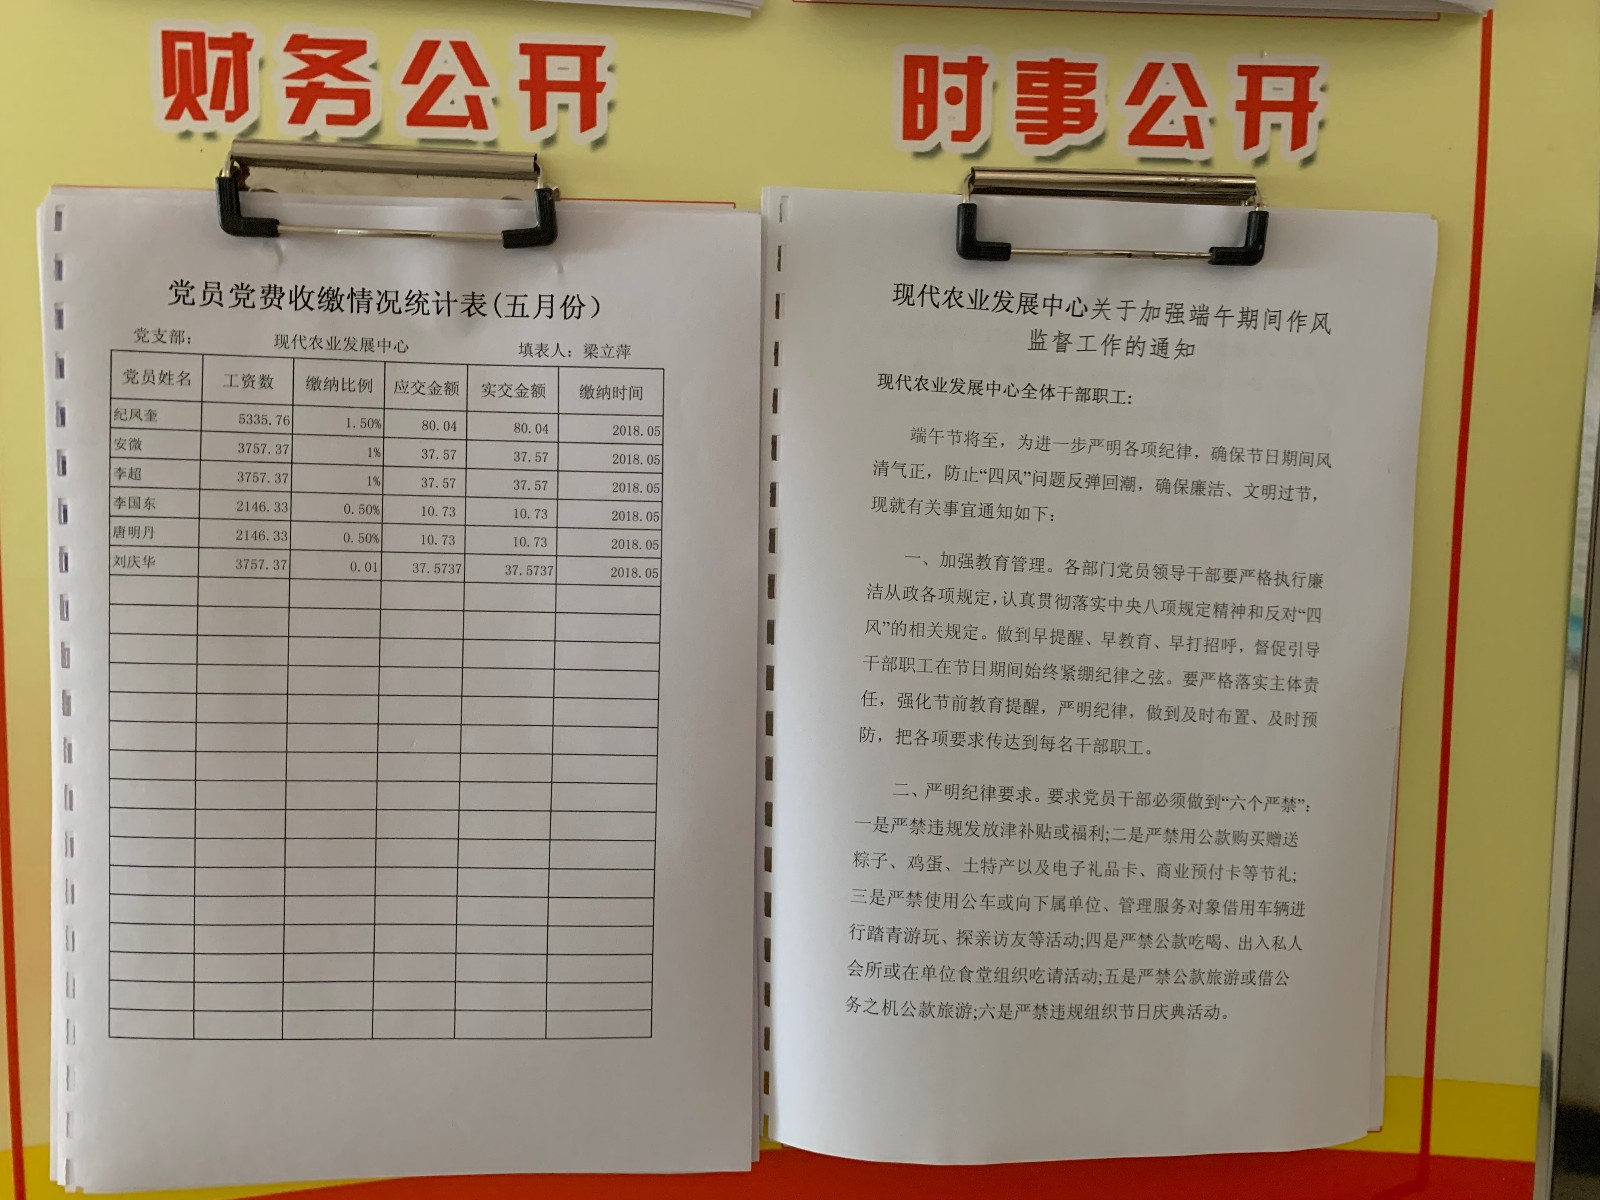 财务公开
党员党费收缴情况统计表(五月份)
党支部: 现代农业发展中心 填表人: 梁立萍
党员姓名 工资数 缴纳比例 应交金额 实交金额 缴纳时间
纪凤奎 5335.76 1.50% 80.04 80.04 2018.05
安微 3757.37 1% 37.57 37.57 2018.05
李超 3757.37 1% 37.57 37.57 2018.05
李国东 2146.33 0.50% 10.73 10.73 2018.05
唐明丹 2146.33 0.50% 10.73 10.73 2018.05
刘庆华 3757.37 0.01 37.5737 37.5737 2018.05
时事公开
现代农业发展中心关于加强端午期间作风
监督工作的通知
现代农业发展中心全体干部职工:
端午节将至，为进一步严明各项纪律，确保节日期间风
清气正，防止“四风”问题反弹回潮，确保廉洁、文明过节，
现就有关事宜通知如下:
一、加强教育管理。各部门党员领导干部要严格执行廉
洁从政各项规定，认真贯彻落实中央八项规定精神和反对“四
风”的相关规定。做到早提醒、早教育、早打招呼，督促引导
干部职工在节日期间始终紧绷纪律之弦。要严格落实主体责
任，强化节前教育提醒，严明纪律，做到及时布置、及时预
防，把各项要求传达到每名干部职工。
二、严明纪律要求。要求党员干部必须做到“六个严禁”:
一是严禁违规发放津补贴或福利;二是严禁用公款购买赠送
粽子、鸡蛋、土特产以及电子礼品卡、商业预付卡等节礼;
三是严禁使用公车或向下属单位、管理服务对象借用车辆进
行踏青游玩、探亲访友等活动;四是严禁公款吃喝、出入私人
会所或在单位食堂组织吃请活动;五是严禁公款旅游或借公
务之机公款旅游;六是严禁违规组织节日庆典活动。